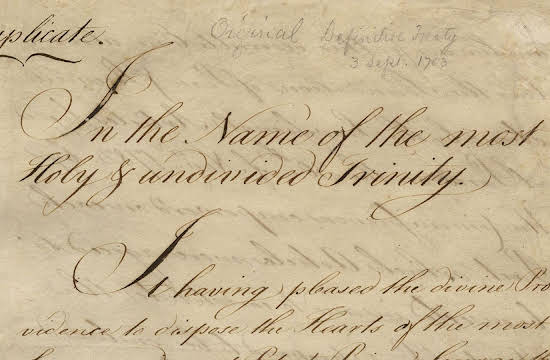 Duplicate.
Original Definitive Treaty
3 Sept. 1783
In the Name of the most
Holy & undivided Trinity.
It having pleased the divine Pro
vidence to dispose the Hearts of the most